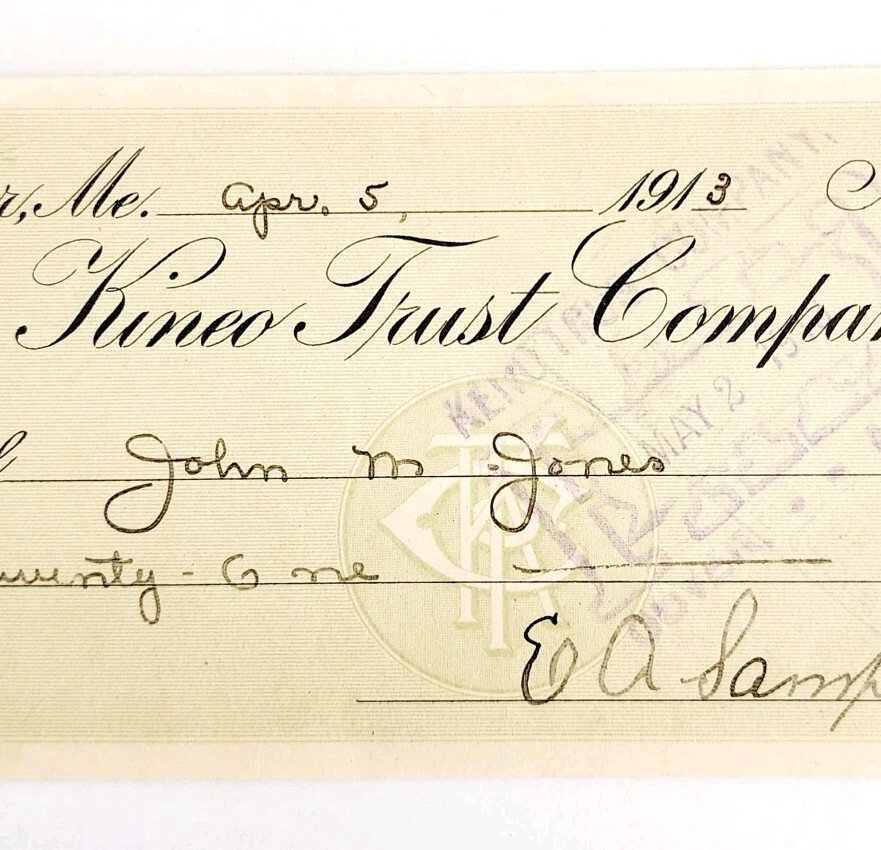 r, Me. Apr. 5, 1913
Kineo Trust Compa
John M Jones
wenty-One
E A Samp
COMPANY,
MAY 2